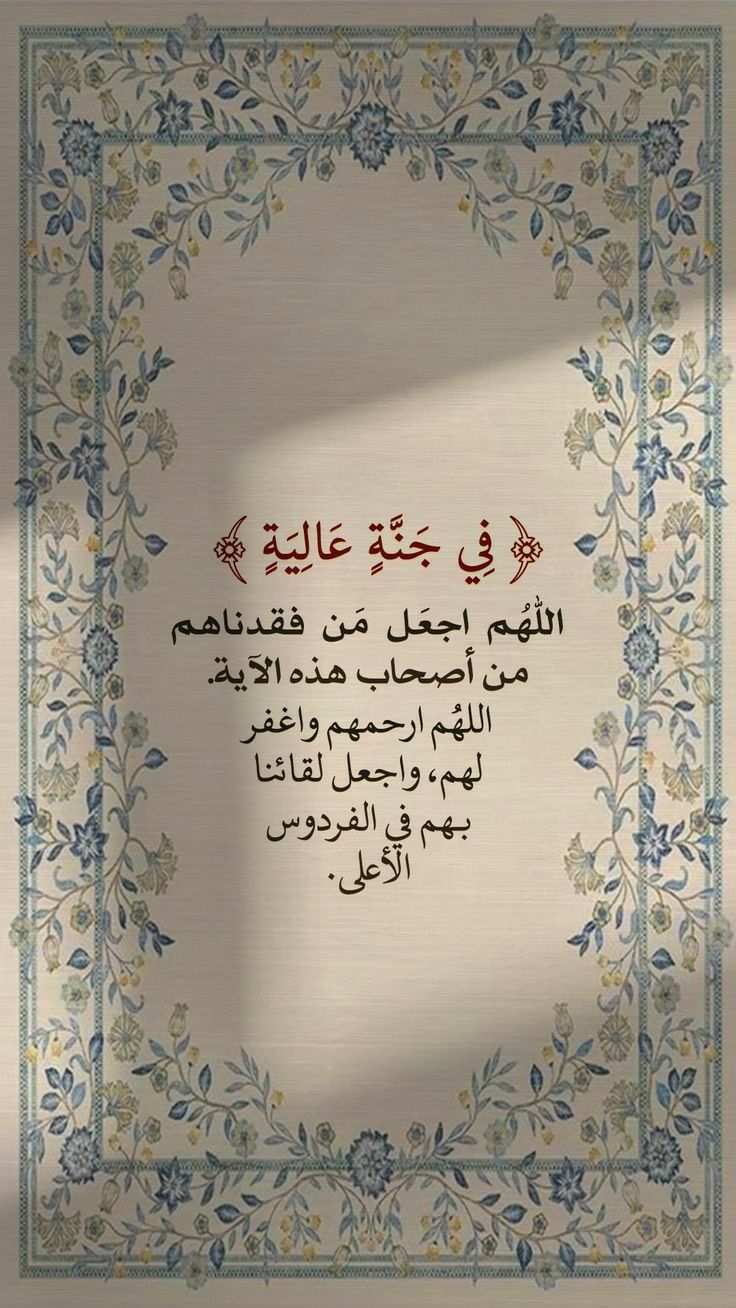 ﴿ فِي جَنَّةٍ عَالِيَةٍ ﴾
اللهُم اجعَل مَن فقدناهم
من أصحاب هذه الآية.
اللهُم ارحمهم واغفر
لهم، واجعل لقائنا
بهم في الفردوس
الأعلى.